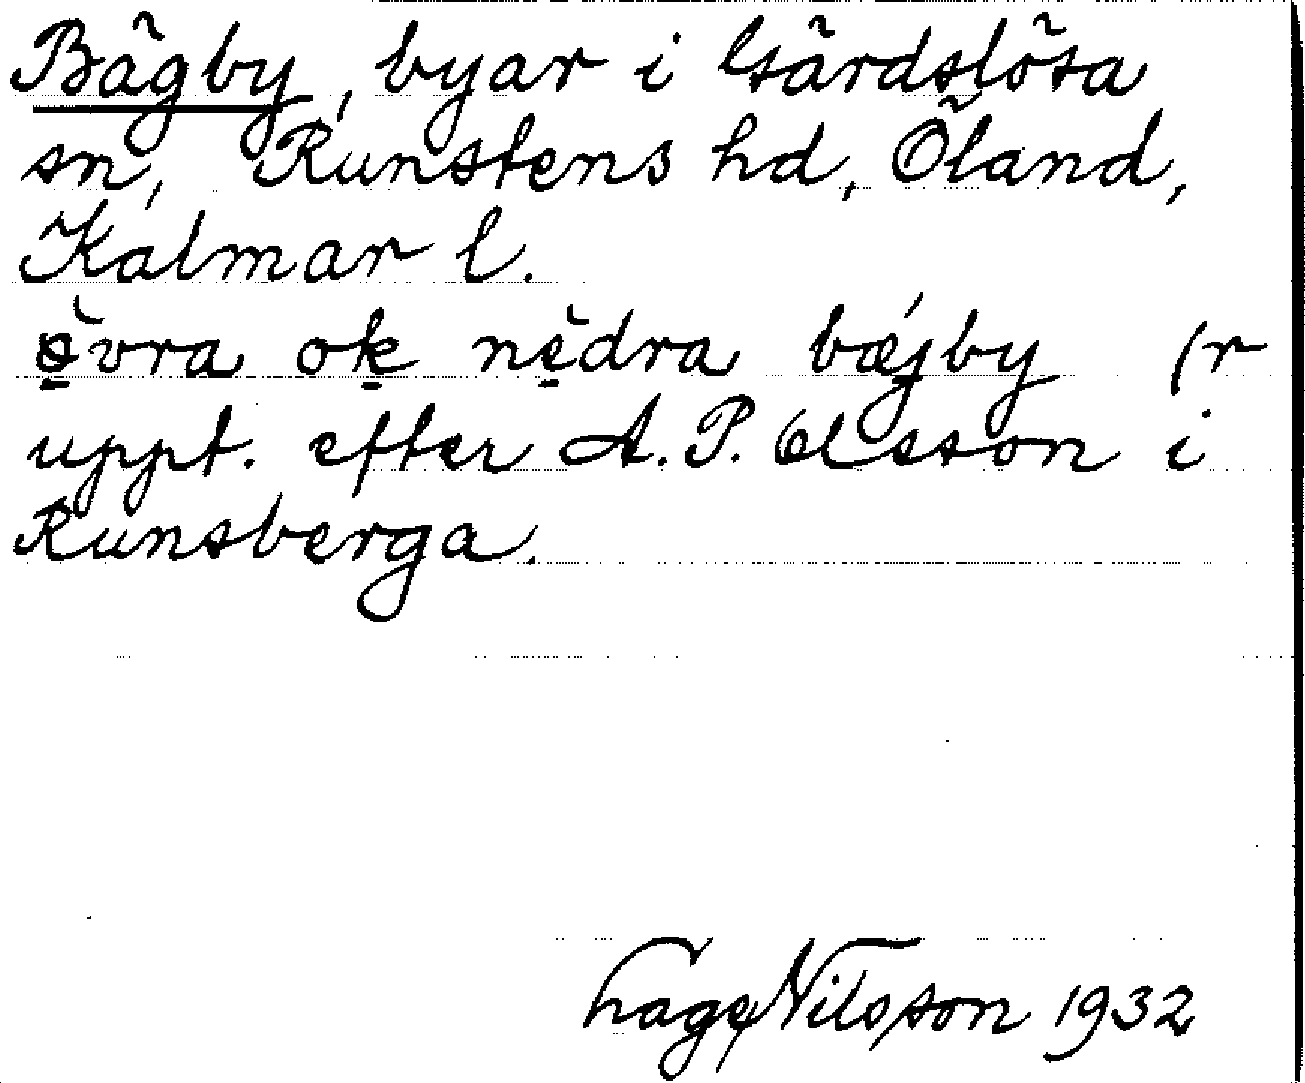 Bägby, byar i Gärdslösa
sn, Runstens hd, Öland,
Kalmar l.
övra ok nedra bæjby (r
uppt. efter A. P. Olsson i
Runsberga.
Nilsson 1932